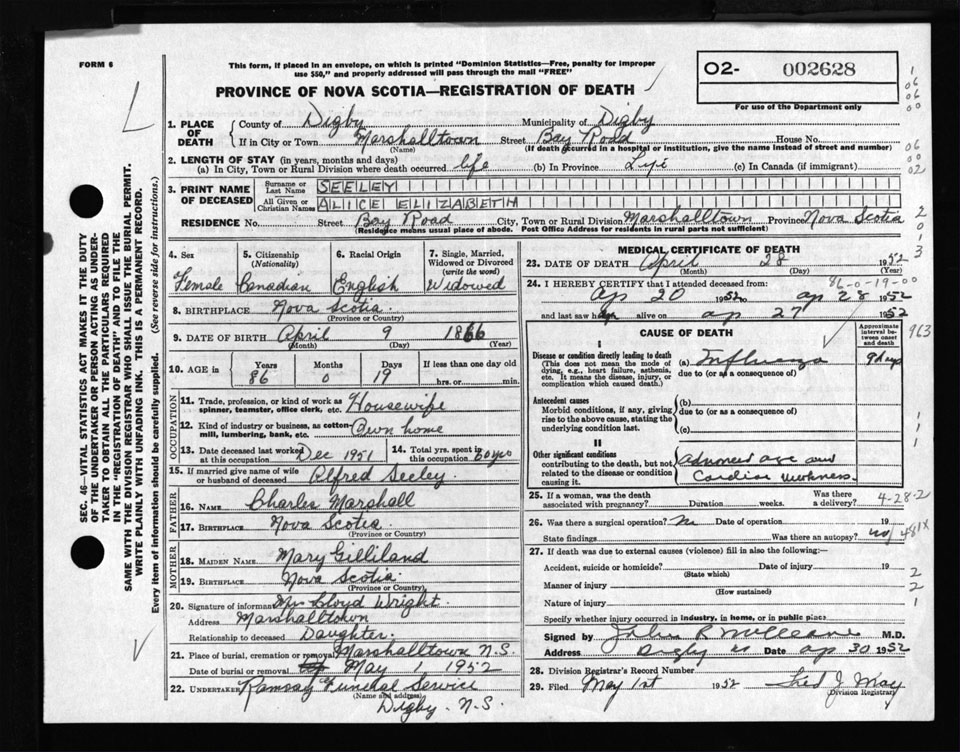 FORM 6
This form, if placed in an envelope, on which is printed "Dominion Statistics—Free, penalty for improper
use $50," and properly addressed will pass through the mail "FREE"
PROVINCE OF NOVA SCOTIA—REGISTRATION OF DEATH
02- 002628
For use of the Department only
1. PLACE OF DEATH
County of Digby Municipality of Digby
If in City or Town Marshalltown Street Bay Road House No.
(Name) (If death occurred in a hospital or institution, give the name instead of street and number)
2. LENGTH OF STAY (in years, months and days)
(a) In City, Town or Rural Division where death occurred life (b) In Province Life (c) In Canada (if immigrant)
3. PRINT NAME OF DECEASED
Surname or Last Name SEELEY
All Given or Christian Names ALICE ELIZABETH
RESIDENCE No. Street Bay Road City, Town or Rural Division Marshalltown Province Nova Scotia
(Residence means usual place of abode. Post Office Address for residents in rural parts not sufficient)
4. Sex 5. Citizenship (Nationality) 6. Racial Origin 7. Single, Married, Widowed or Divorced (write the word)
Female Canadian English Widowed
8. BIRTHPLACE Nova Scotia
(Province or Country)
9. DATE OF BIRTH April 9 1866
(Month) (Day) (Year)
10. AGE in Years Months Days If less than one day old
86 0 19 hrs. or min.
OCCUPATION
11. Trade, profession, or kind of work as spinner, teamster, office clerk, etc. Housewife
12. Kind of industry or business, as cotton-mill, lumbering, bank, etc. Own home
13. Date deceased last worked at this occupation Dec 1951 14. Total yrs. spent in this occupation
15. If married give name of wife or husband of deceased Alfred Seeley
FATHER
16. NAME Charles Marshall
17. BIRTHPLACE Nova Scotia
(Province or Country)
MOTHER
18. MAIDEN NAME Mary Gilliland
19. BIRTHPLACE Nova Scotia
(Province or Country)
20. Signature of informant Mrs Lloyd Wright
Address Marshalltown
Relationship to deceased Daughter
21. Place of burial, cremation or removal Marshalltown N.S.
Date of burial or removal May 1, 1952
22. UNDERTAKER Ramsay Funeral Service
(Name and address)
Digby N.S.
MEDICAL CERTIFICATE OF DEATH
23. DATE OF DEATH April 28 1952
(Month) (Day) (Year)
86-0-19-00
24. I HEREBY CERTIFY that I attended deceased from:
Ap 20 1952 to Ap 28 1952
and last saw her alive on Ap 27 1952
CAUSE OF DEATH
Approximate interval between onset and death
I
Disease or condition directly leading to death
(This does not mean the mode of dying, e.g., heart failure, asthenia, etc. It means the disease, injury, or complication which caused death.)
(a) Influenza 9 days
due to (or as a consequence of)
Antecedent causes
Morbid conditions, if any, giving rise to the above cause, stating the underlying condition last.
(b)
due to (or as a consequence of)
(c)
II
Other significant conditions
contributing to the death, but not related to the disease or condition causing it.
advanced age and
Cardiac weakness
963
25. If a woman, was the death associated with pregnancy? Duration weeks. Was there a delivery?
4-28-2
26. Was there a surgical operation? no Date of operation 19
State findings Was there an autopsy? no
481X
27. If death was due to external causes (violence) fill in also the following:—
Accident, suicide or homicide? Date of injury 19
(State which)
Manner of injury
(How sustained)
Nature of injury
Specify whether injury occurred in industry, in home, or in public place
Signed by M.D.
Address Digby NS Date Ap 30 1952
28. Division Registrar's Record Number
29. Filed May 1st 1952 Fred J. May
(Division Registrar)
SEC. 46—VITAL STATISTICS ACT MAKES IT THE DUTY
OF THE UNDERTAKER OR PERSON ACTING AS UNDER-
TAKER TO OBTAIN ALL THE PARTICULARS REQUIRED
IN THE "REGISTRATION OF DEATH" AND TO FILE THE
SAME WITH THE DIVISION REGISTRAR WHO SHALL ISSUE THE BURIAL PERMIT.
WRITE PLAINLY WITH UNFADING INK. THIS IS A PERMANENT RECORD.
Every item of information should be carefully supplied. (See reverse side for instructions.)